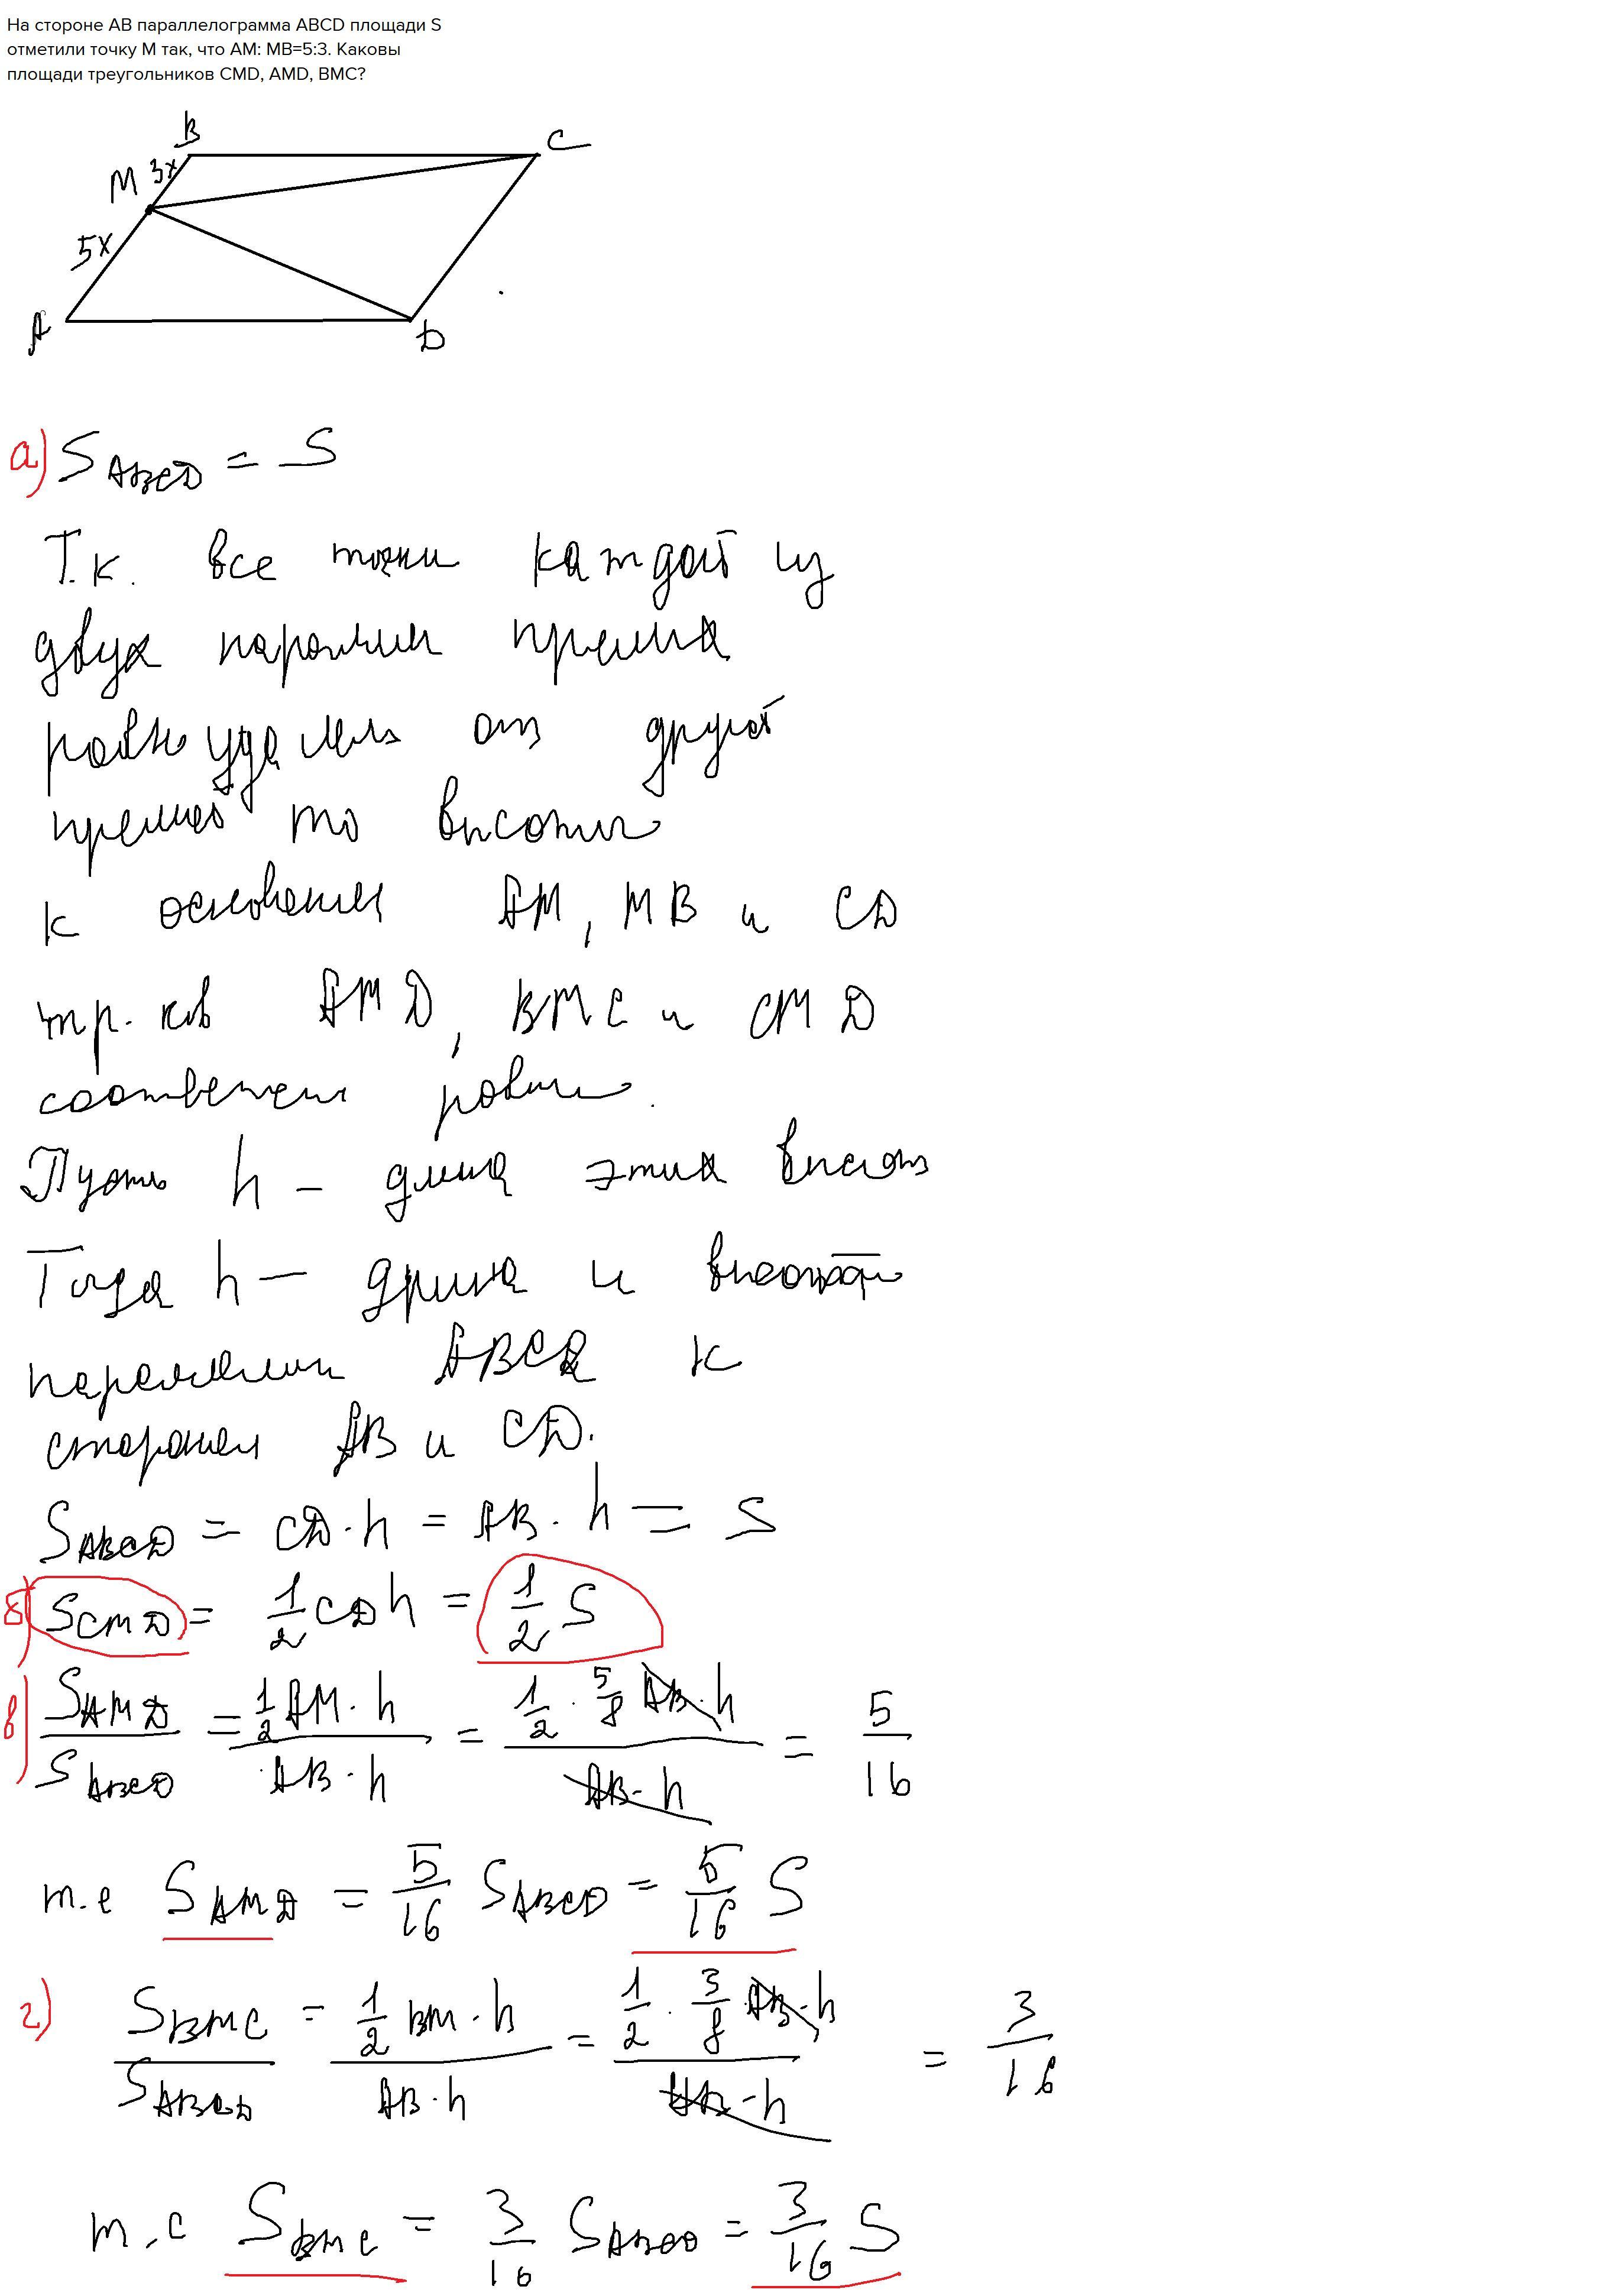 На стороне AB параллелограмма ABCD площади S
отметили точку M так, что AM: MB=5:3. Каковы
площади треугольников CMD, AMD, BMC?
B
C
M 3x
5x
A
D
а) S ABCD = S
Т.к. все точки каждой из
двух паралл прямых
равноудалены от другой
прямой то высоты
к основаниям AM, MB и CD
тр.-ков AMD, BMC и CMD
соответственно равны.
Пусть h - длина этих высот
Тогда h - длина и высоты
параллелограмма ABCD к
сторонам AB и CD.
S ABCD = CD · h = AB · h = S
б) S CMD = 1/2 CD h = 1/2 S
в) S AMD / S ABCD = 1/2 AM · h / AB · h = 1/2 · 5/8 AB · h / AB · h = 5/16
т.е S AMD = 5/16 S ABCD = 5/16 S
г) S BMC / S ABCD = 1/2 BM · h / AB · h = 1/2 · 3/8 · AB · h / AB · h = 3/16
т.е S BMC = 3/16 S ABCD = 3/16 S